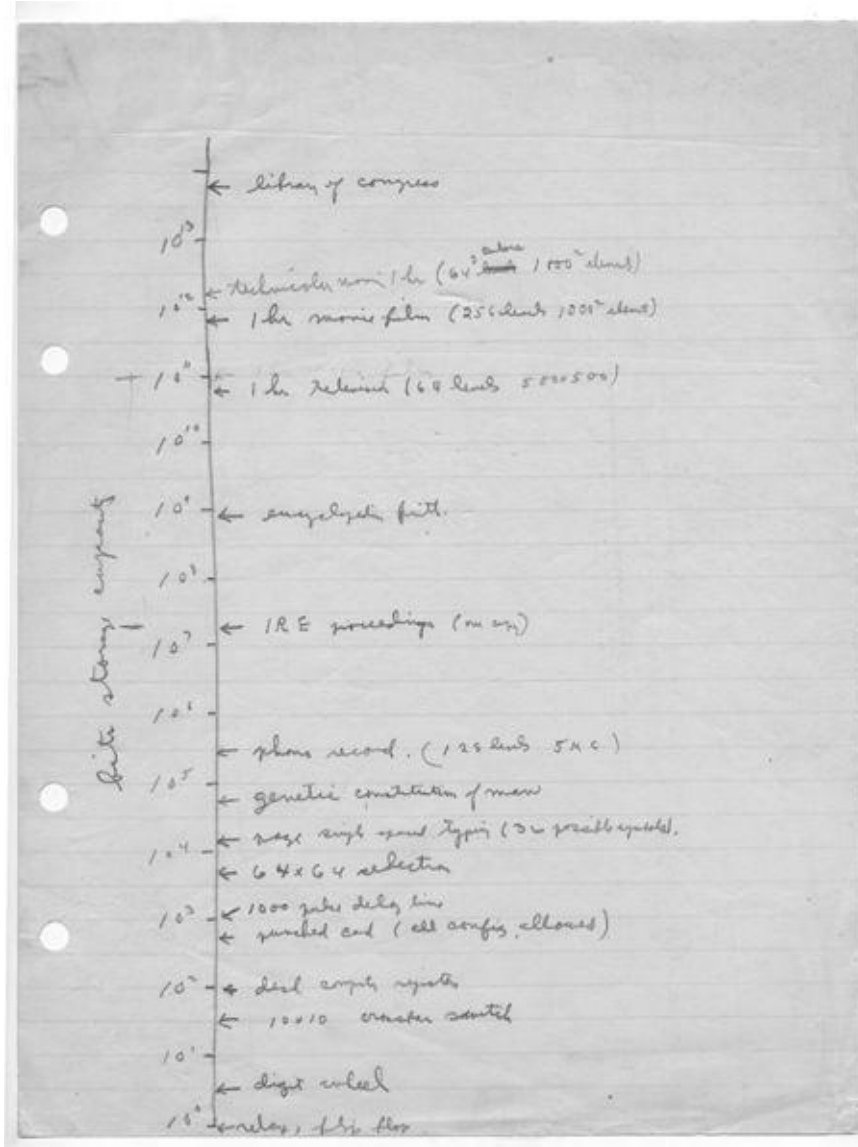 ← library of congress
10¹³
← technicolor movie 1 hr (64³ colors 1000² elements)
10¹²
← 1 hr movie film (256 levels 1000² elements)
10¹¹
← 1 hr television (64 levels 500x500)
10¹⁰
10⁹
← encyclopedia britt.
10⁸
← IRE proceedings
10⁷
10⁶
← phono record. (128 levels 5 K C)
10⁵
← genetic constitution of man
← page single spaced typing (32 possible symbols).
10⁴
← 64x64 selection
← 1000 pulse delay line
10³
← punched card (all config. allowed)
10²
← desk register
← 10x10 crossbar switch
10¹
← digit wheel
10⁰
← relay, flip flop
bits storage capacity